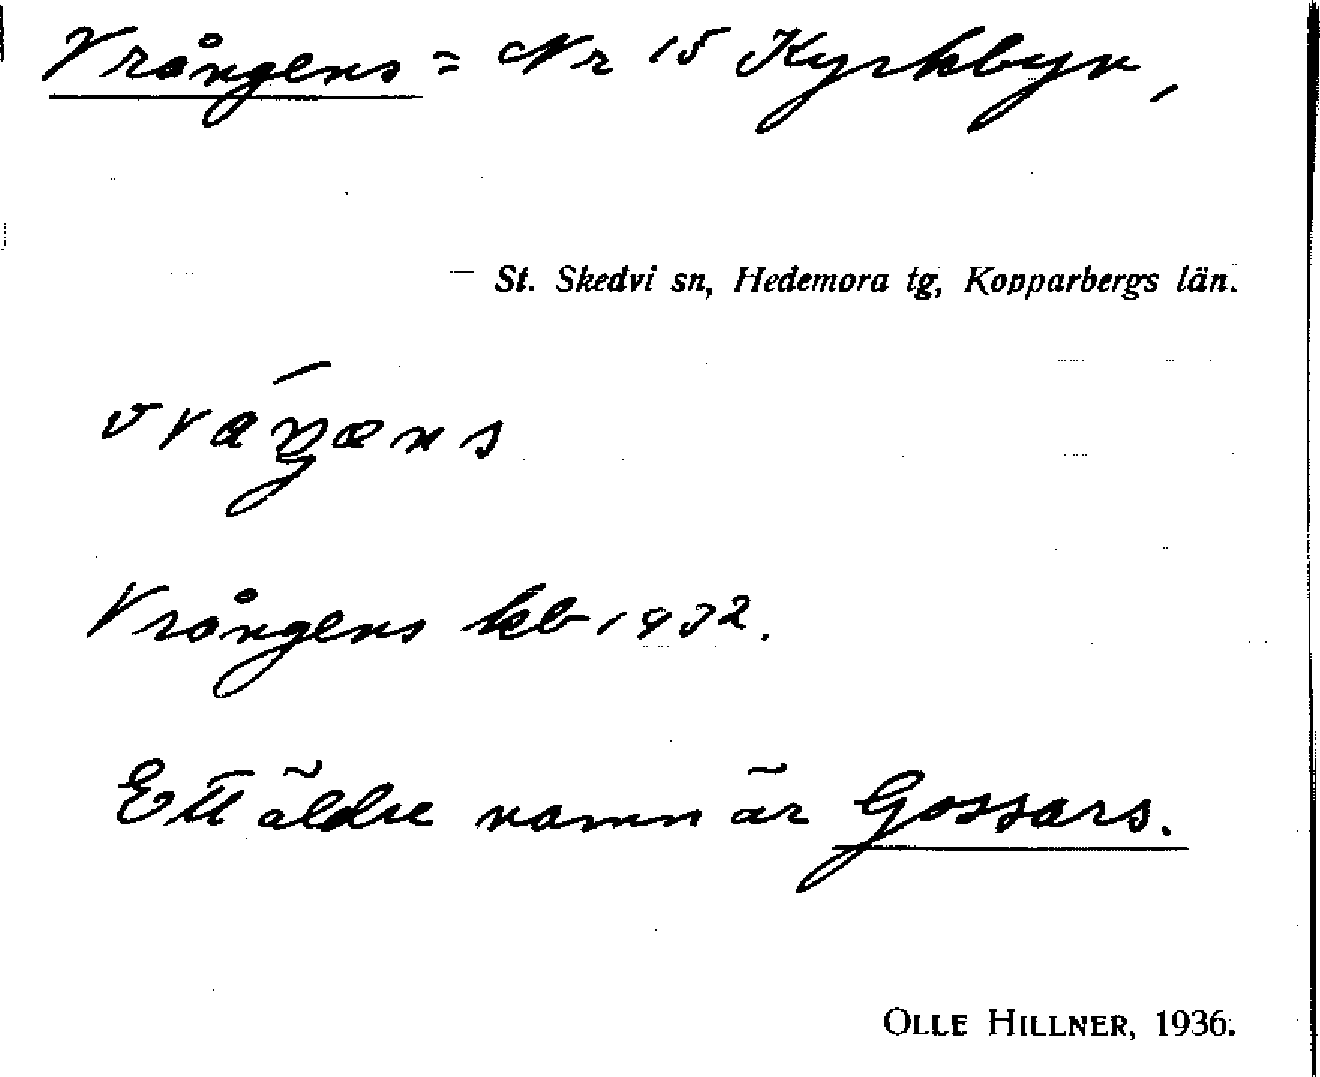 Vrångens = Nr 15 Kyrkbyn,
St. Skedvi sn, Hedemora tg, Kopparbergs län.
Vrångens kb 1932.
Ett äldre namn är Gossars.
OLLE HILLNER, 1936.